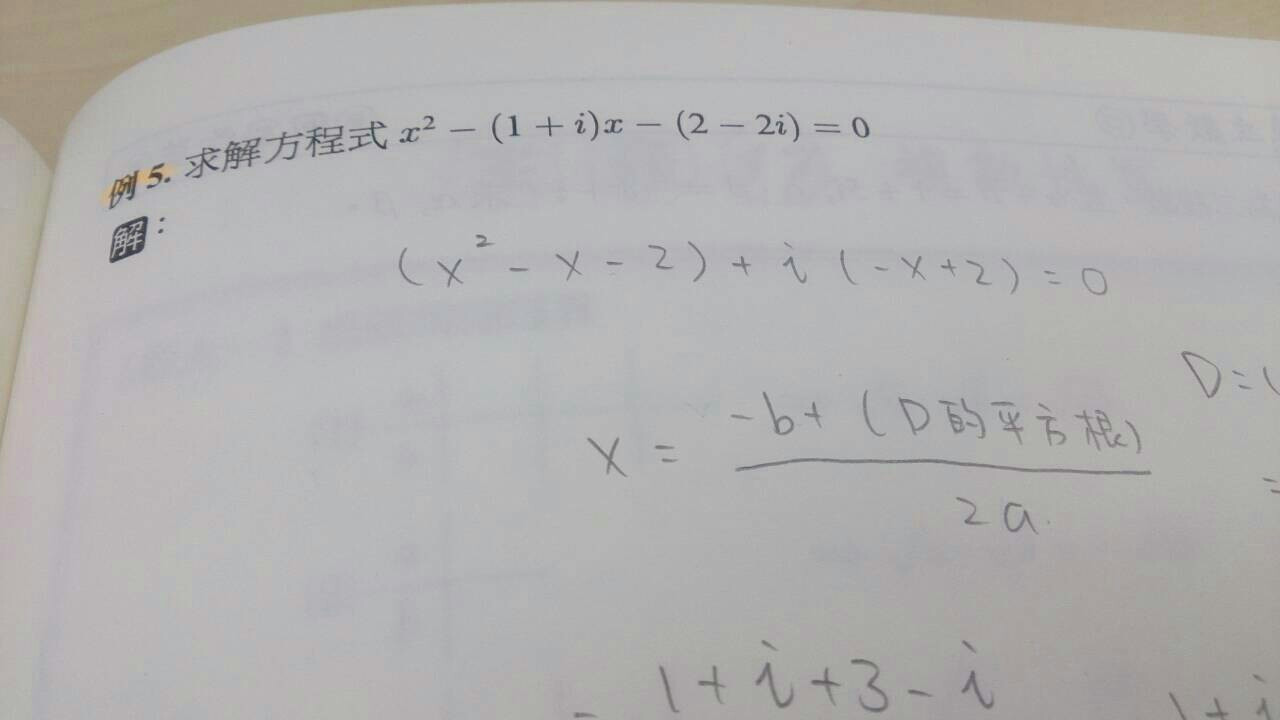 例 5. 求解方程式 x² − (1 + i)x − (2 − 2i) = 0
解：
(x² - x - 2) + i (-x+2) = 0
D = (
x = \frac{-b + (D的平方根)}{2a}
=
= 1 + i + 3 - i
1 + i